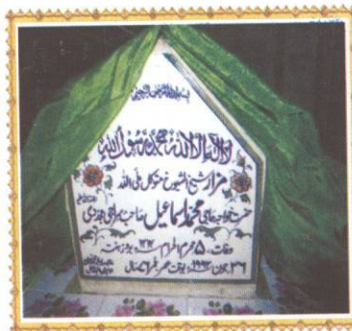 بسم اللہ الرحمن الرحیم
لا الہ الا اللہ محمد رسول اللہ
مزار شیخ الشیوخ متوکل علی اللہ
حضرت خواجہ حاجی محمد اسماعیل صاحب
وفات ۵ محرم الحرام ۱۴۱۴ھ بروز ہفتہ
۲۶ جون ۱۹۹۳ء بوقت عصر عمر سال